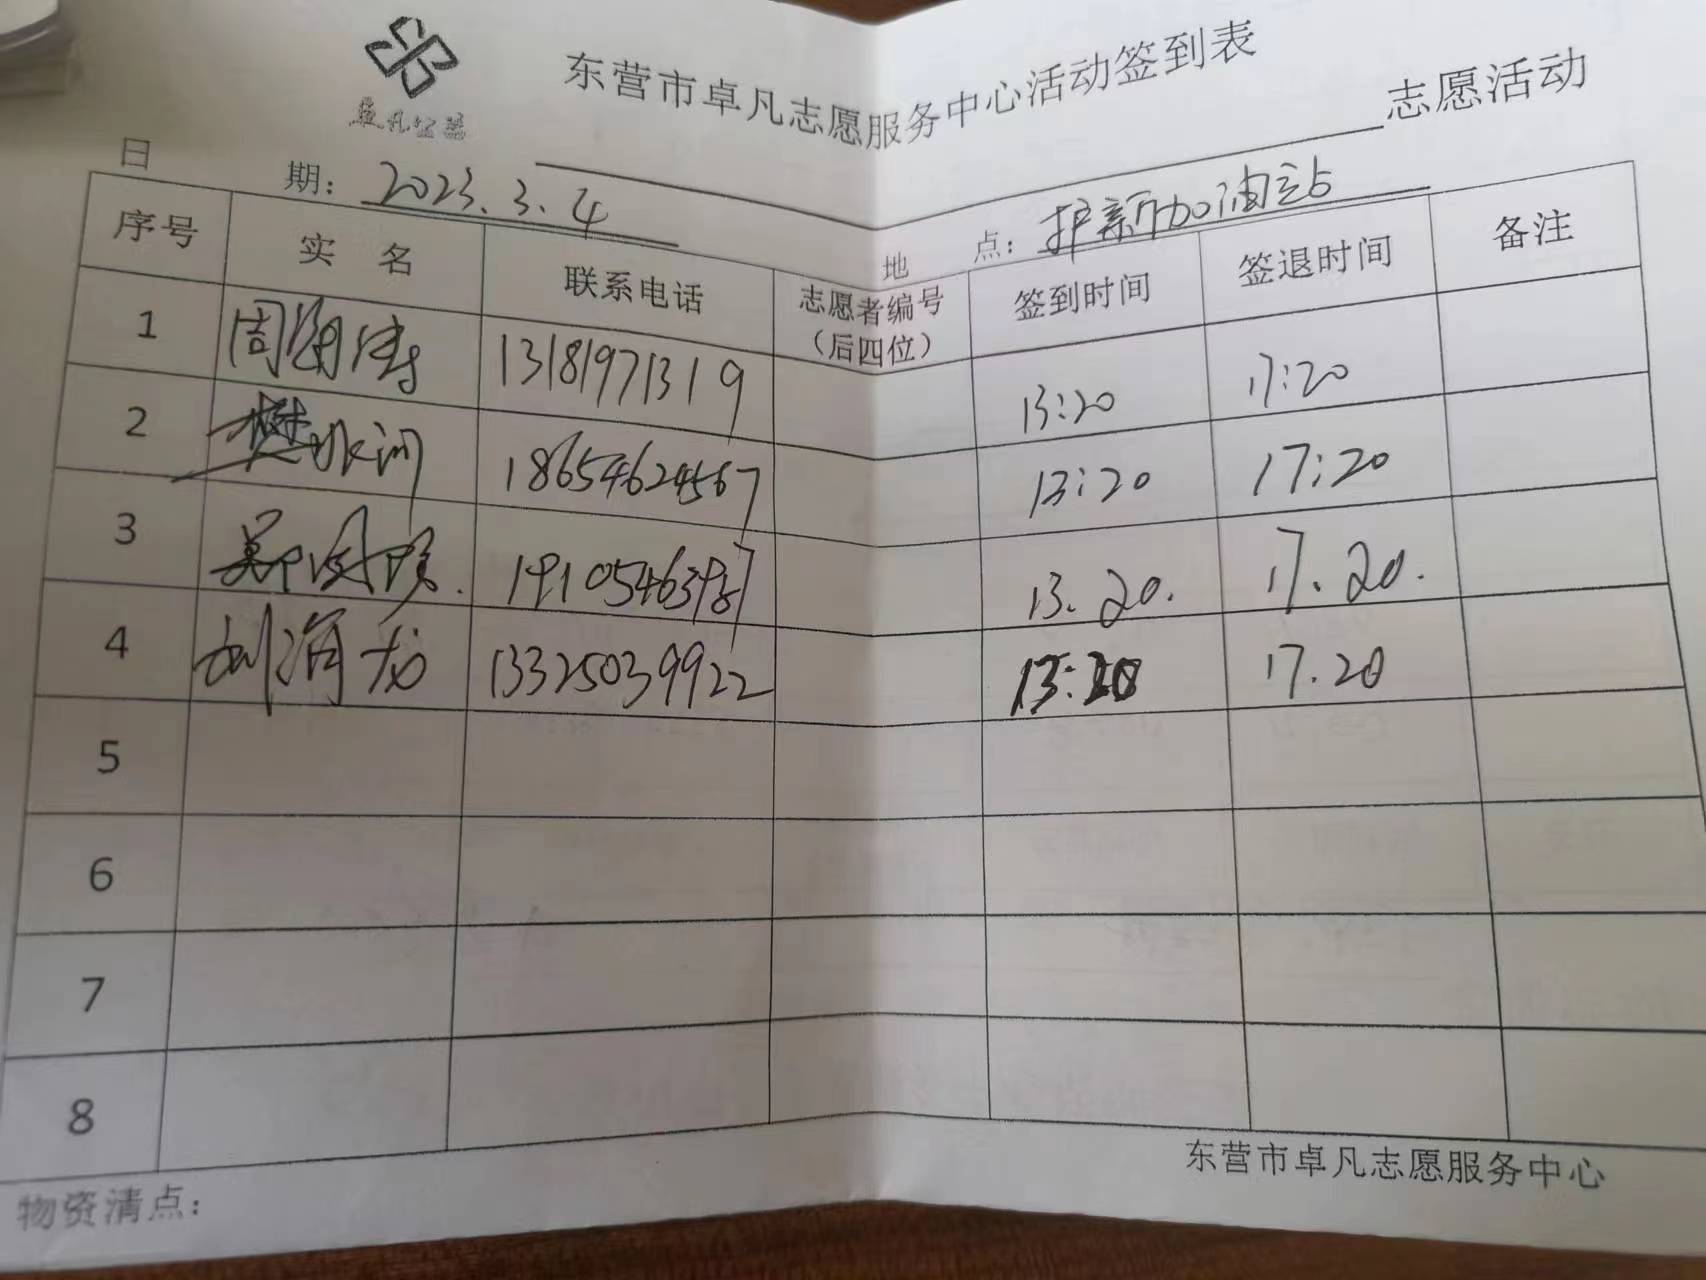 卓凡公益
东营市卓凡志愿服务中心活动签到表
志愿活动
日 期: 2023.3.4 地 点: 护新加油站
序号 实 名 联系电话 志愿者编号(后四位) 签到时间 签退时间 备注
1 周海涛 13181971319 13:20 17:20
2 樊 18654624567 13:20 17:20
3 13.20. 17.20.
4 刘海龙 13325039922 13:20 17.20
5
6
7
8
东营市卓凡志愿服务中心
物资清点: